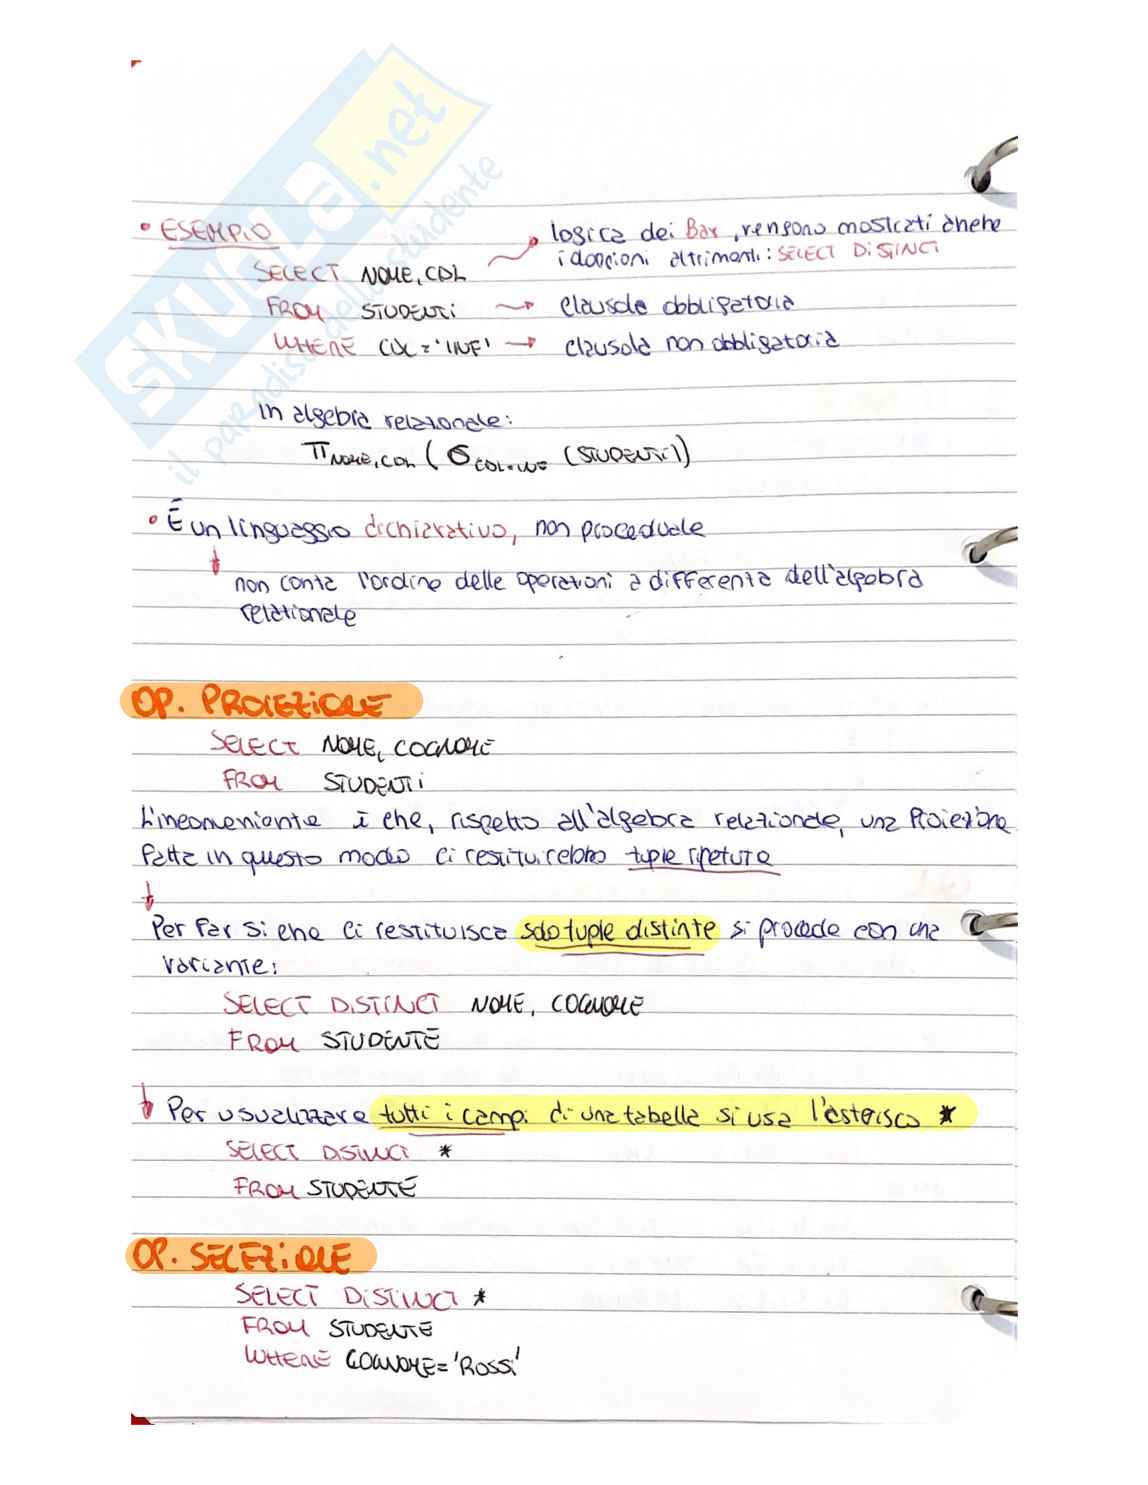 SKUOLA.net
il paradiso dello studente
• ESEMPIO
SELECT NOME, CDL
logica dei Bag, vengono mostrati anche
i doppioni altrimenti: SELECT DISTINCT
FROM STUDENTI → clausola obbligatoria
WHERE CDL='INF' → clausola non obbligatoria
In algebra relazionale:
π NOME, CDL (σ CDL=INF (STUDENTI))
• È un linguaggio dichiarativo, non procedurale
non conta l'ordine delle operazioni a differenza dell'algebra
relazionale
OP. PROIEZIONE
SELECT NOME, COGNOME
FROM STUDENTI
L'inconveniente è che, rispetto all'algebra relazionale, una Proiezione
fatta in questo modo ci restituirebbe tuple ripetute
Per far si che ci restituisca solo tuple distinte si procede con una
variante:
SELECT DISTINCT NOME, COGNOME
FROM STUDENTE
Per visualizzare tutti i campi di una tabella si usa l'asterisco *
SELECT DISTINCT *
FROM STUDENTE
OP. SELEZIONE
SELECT DISTINCT *
FROM STUDENTE
WHERE COGNOME='ROSSI'